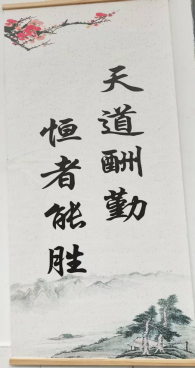 天道酬勤
恒者能胜